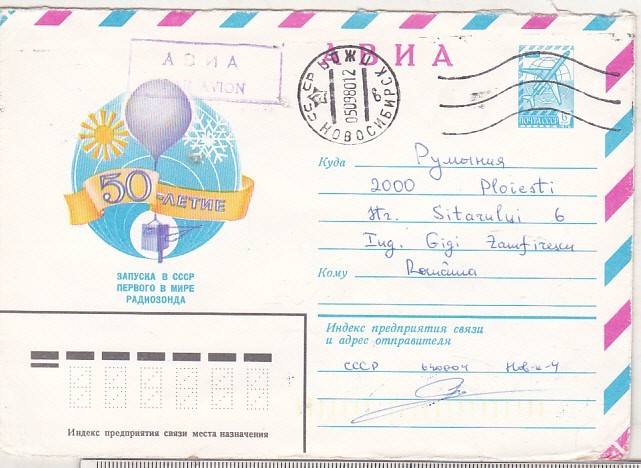 АВИА
АВИА
AVION
ПОЧТА СССР
6
СССР
НОВОСИБИРСК
05098012
50-ЛЕТИЕ
ЗАПУСКА В СССР
ПЕРВОГО В МИРЕ
РАДИОЗОНДА
Куда Румыния
2000 Ploiesti
Str. Sitarului 6
Ing. Gigi Zamfirescu
Кому România
Индекс предприятия связи
и адрес отправителя
СССР 630004 Нов-к-4
Индекс предприятия связи места назначения